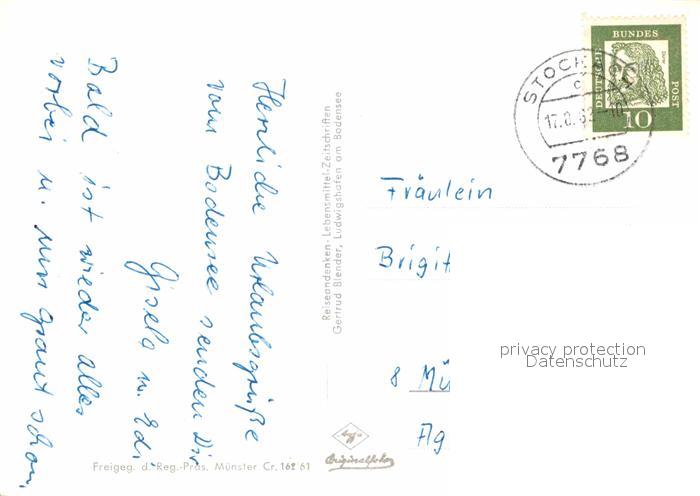 Herzliche Urlaubsgrüße
vom Bodensee senden Dir
Gisela u. Edi.
Bald ist wieder alles
vorbei u. uns graut schon.
Reiseandenken-Lebensmittel-Zeitschriften
Gertrud Blender, Ludwigshafen am Bodensee
Freigeg. d. Reg.-Präs. Münster Cr. 162 61
Agfa
Originalfoto
DEUTSCHE
BUNDES
POST
Dürer
10
STOCK
17.8.62
7768
Fräulein
Brigit
8 Mü
Ag
privacy protection
Datenschutz